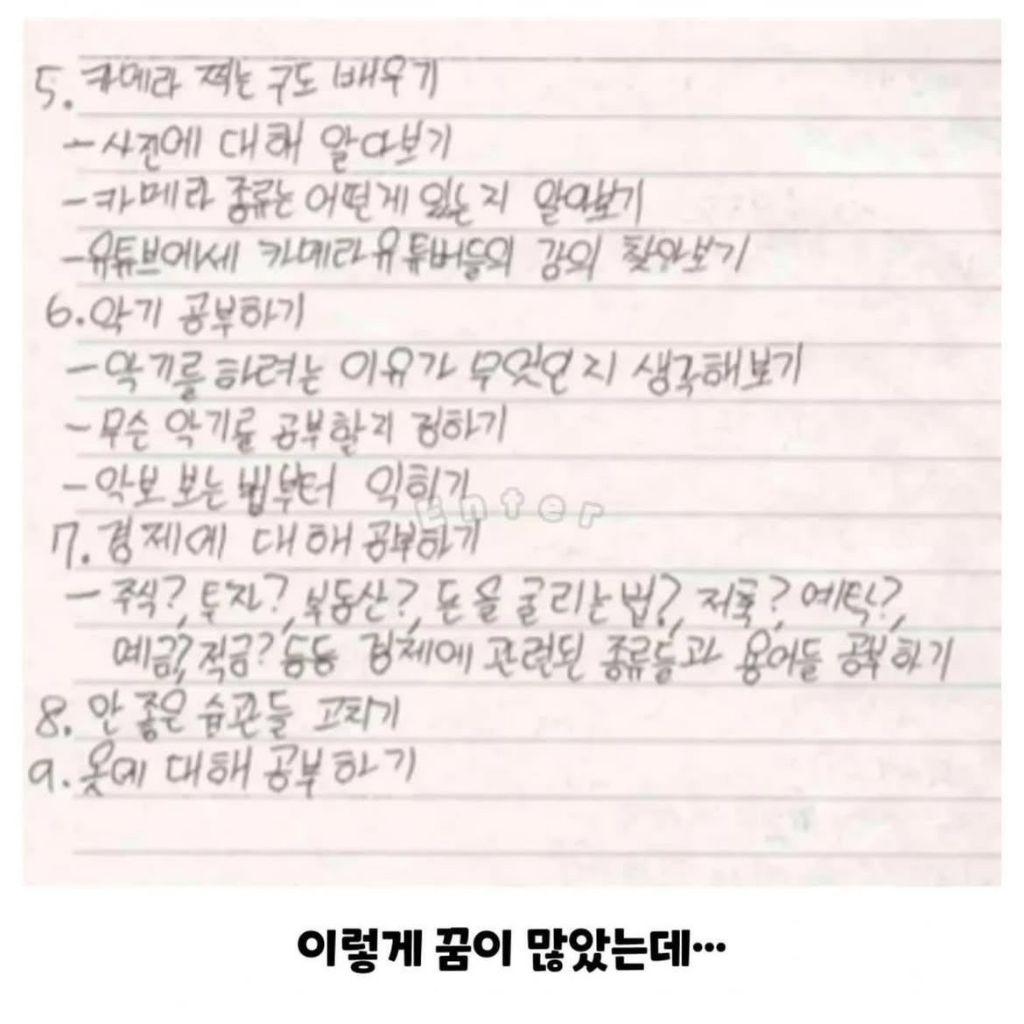 5. 카메라 찍는 구도 배우기
-사진에 대해 알아보기
-카메라 종류는 어떤게 있는지 알아보기
-유튜브에세 카메라유튜버들의 강의 찾아보기
6. 악기 공부하기
-악기를 하려는 이유가 무엇인지 생각해보기
-무슨 악기를 공부할지 정하기
-악보 보는법부터 익히기
Enter
7. 경제에 대해 공부하기
- 주식?, 투자?, 부동산?, 돈을 굴리는법?, 저축? 예탁?,
예금?, 적금? 등등 경제에 관련된 종류들과 용어들 공부하기
8. 안 좋은 습관들 고치기
9. 옷에 대해 공부하기
이렇게 꿈이 많았는데…